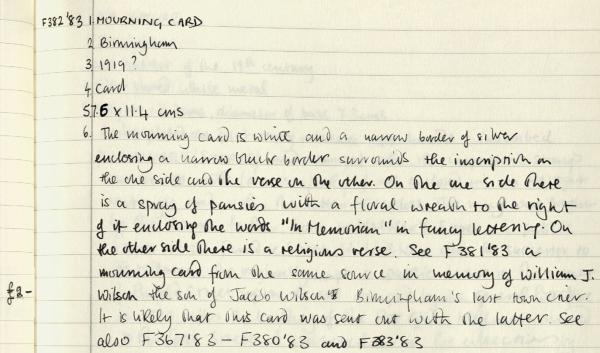 F382'83 1. MOURNING CARD
2 Birmingham
3 1919?
4 Card
5 7.6 x 11.4 cms
6. The mourning card is white and a narrow border of silver
enclosing a narrow black border surrounds the inscription on
the one side and the verse on the other. On the one side there
is a spray of pansies with a floral wreath to the right
of it enclosing the words "In Memoriam" in fancy lettering. On
the other side there is a religious verse. See F381'83 a
mourning card from the same source in memory of William J.
£2- Wilson the son of Jacob Wilson Birmingham's last town crier.
It is likely that this card was sent out with the latter. See
also F367'83 - F380'83 and F383'83